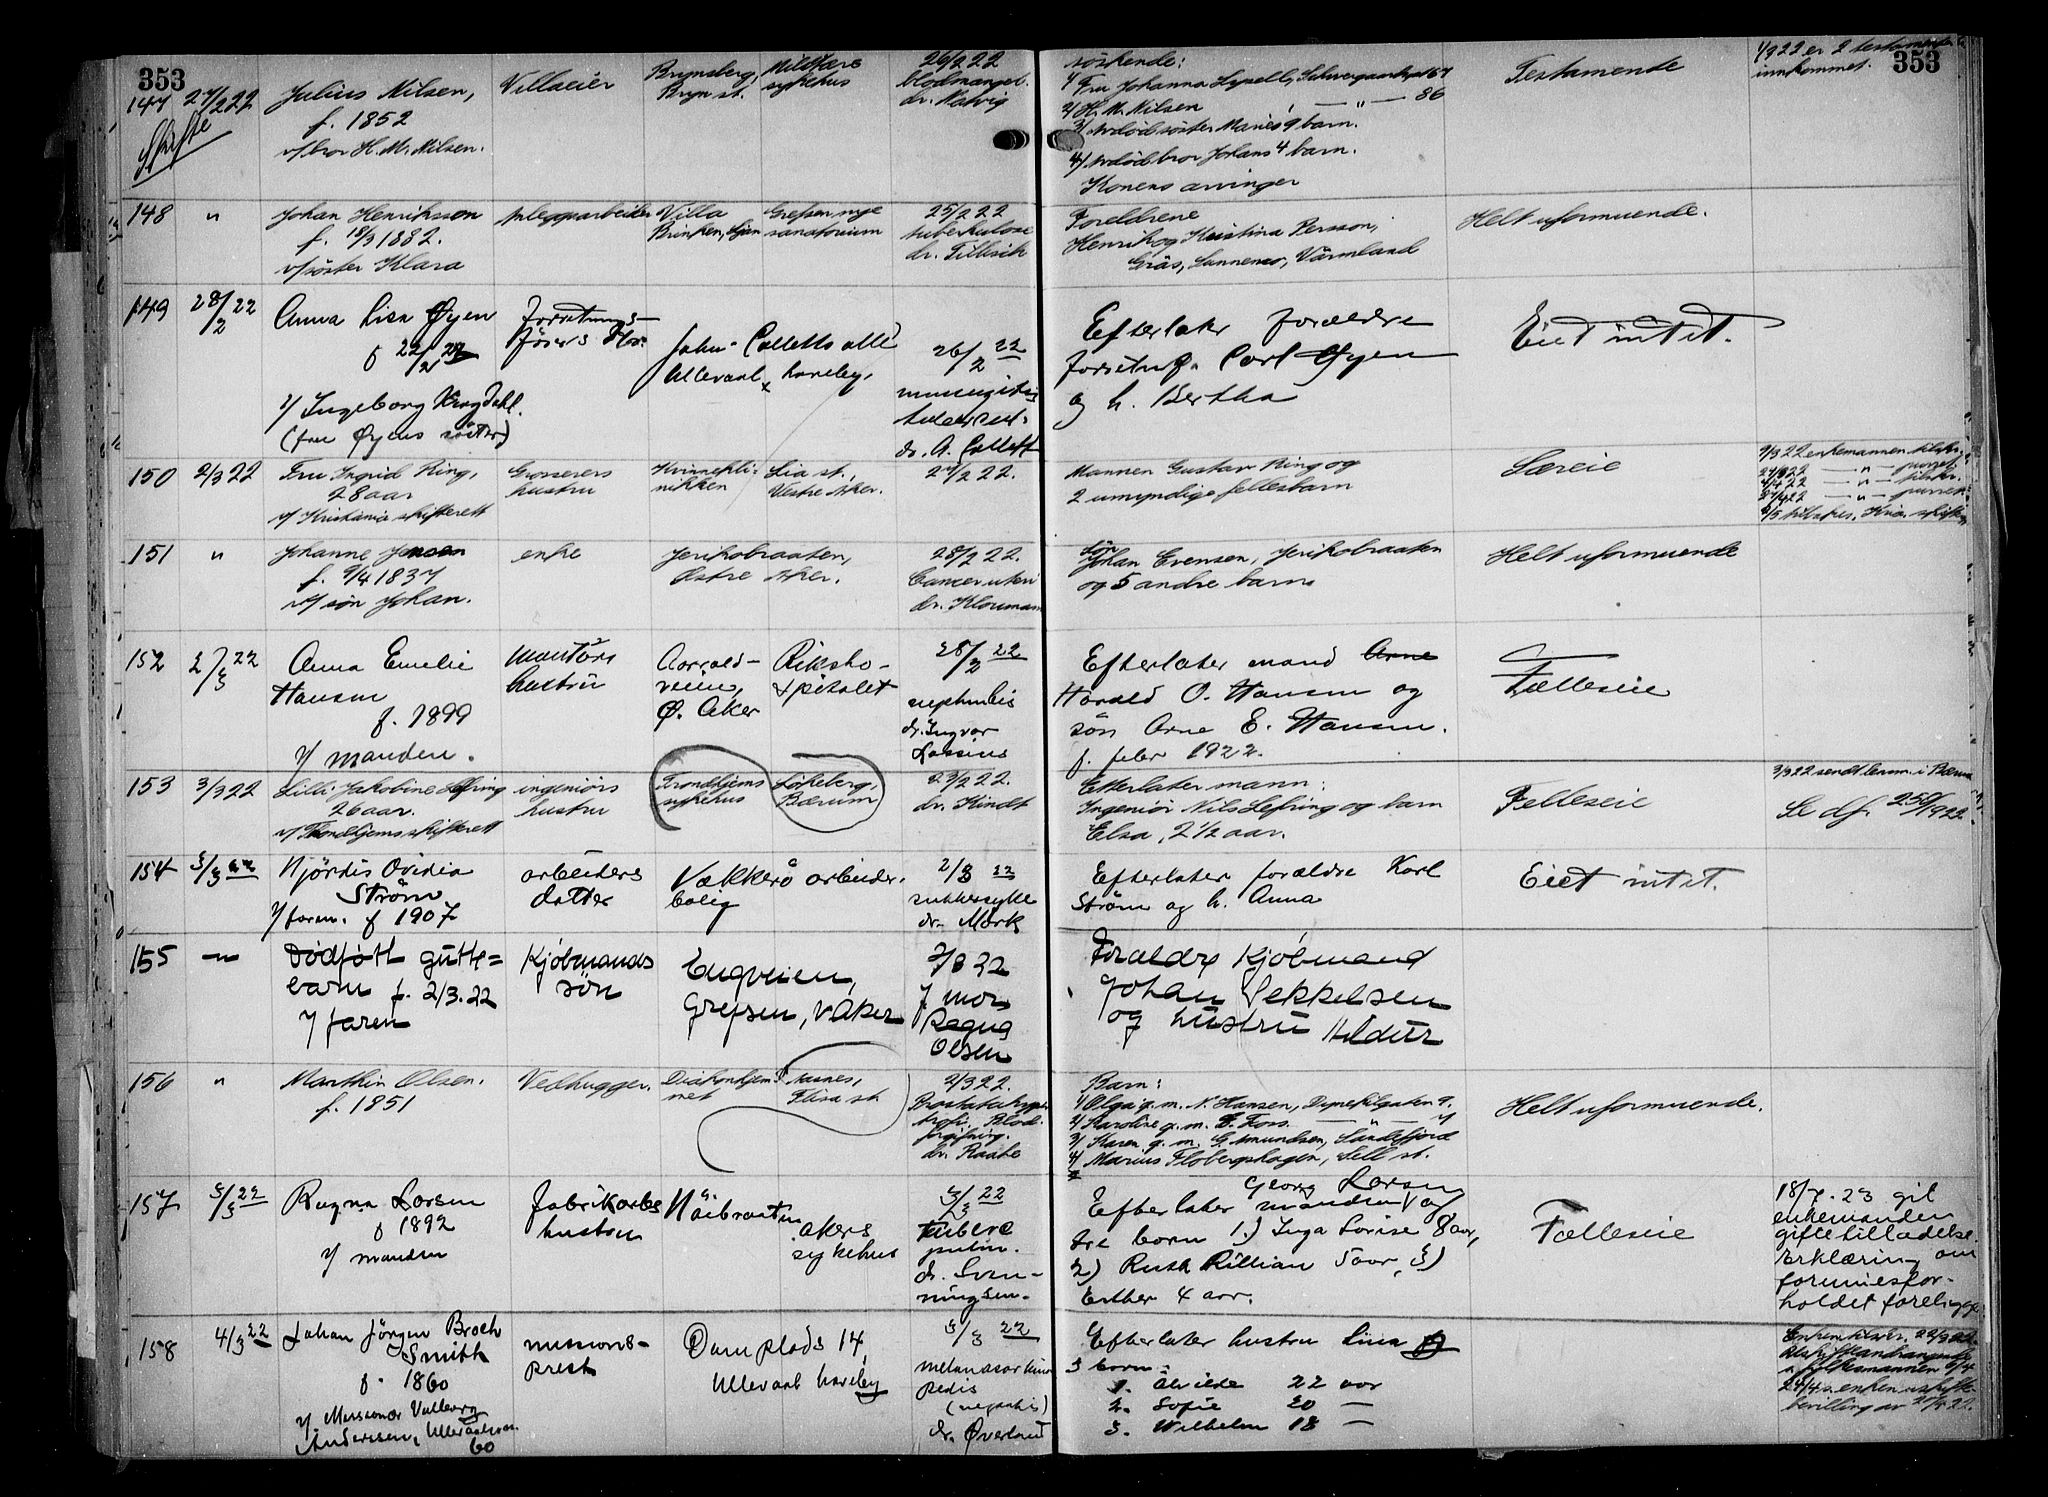 353
353
147
27/2 22
Julius Nilsen,
f. 1852
v/ bror H. M. Nilsen.
Skifte
Villaeier
Brynsberg,
Bryn st.
Militære
sykehus
26/2 22
blodmangel.
dr. Hatvig
søskende:
1/ Fru Johanna Lysell, Schweigaardsgt 67
2/ H. M. Nilsen — " — 86
3/ avdød søster Maries 9 barn.
4/ avdød bror Johans 4 barn.
Konens arvinger
Testamende
1/3 22 er 2 testamenter
innkommet.
148
"
Johan Henriksson
f. 18/3 1882.
v/ søster Klara
anleggsarbeider
Villa
Brinken,
Grefsen nye
sanatorium
25/2 22
tuberkulose
dr. Tillisch
Foreldrene
Henrik og Kristina Persson,
Gräs, Sunnemo, Värmland
Helt uformuende.
149
28/2 22
Anna Lisa Øyen
f 22/2 22
v/ Ingeborg Krogdahl.
(fru Øyens søster)
Forretnings-
førers
John Colletts alle
Ullevaal haveby,
26/2 22
dr. A. Collett
Efterlater forældre
forretnf. Carl Øyen
og h. Bertha
Eiet intet.
150
2/3 22
Fru Ingrid Ring,
28 aar
v/ Kristiania skifterett
Grosserers
hustru
Kvinnekli-
nikken
Lia st.,
Vestre Aker.
27/2 22.
Mannen Gustav Ring og
2 umyndige fellesbarn
Særeie
2/3 22 enkemannen tilskr.
27/3 22 — " — purret
4/4 22 — " — tilskr.
27/4 22 — " — purret
151
"
Johanne Jensen
f. 9/4 1837
v/ søn Johan.
enke
Jerikobraaten,
Østre Aker.
28/2 22.
Cancer uteri
dr. Kloumann
Søn
Johan Evensen, Jerikobraaten
og 5 andre barn
Helt uformuende
152
2/3 22
Anna Emelie
Hansen
f. 1899
v/ manden.
Montørs
hustru
veien,
Ø. Aker
Riksho-
spitalet
28/2 22
dr. Ingvar
Efterlater mand Arne
Harald O. Hansen og
søn Arne E. Hansen.
f. febr 1922.
Fælleseie
153
3/3 22
Lilli Jakobine Lefring
26 aar.
v/ Trondhjems skifterett
ingeniørs
hustru
Trondhjems
sykehus
Løkeberg,
Bærum
23/2 22.
dr. Kindt
Etterlater mann:
Ingeniør Nils Lefring og barn
Elsa, 2 1/2 aar.
Felleseie
3/3 22 sendt lensm. i Bærum
Se df. 250/1922
154
3/3 22
Hjørdis Ovidia
Strøm
v/ faren. f 1907
arbeiders
datter
Vækkerø arbeider-
bolig
2/3 22
sukkersyke
dr. Mørk
Efterlater forældre Karl
Strøm og h. Anna
Eiet intet.
155
— " —
Dødfødt gutte=
barn f. 2/3.22
v/ faren
Kjøbmands
søn
Engveien,
Grefsen, V. Aker
2/3 22
j. mor
Ragna
Olsen
Forældre Kjøbmand
Johan Pekkelsen
og hustru Hildur
156
"
Marthin Olsen.
f. 1851
Vedhugger.
Diakonhjem-
met
Flisa st
2/3 22.
Prostatahyper-
trofi. Blod-
forgiftning.
dr. Raabe
Barn:
1/ Olga g. m. N. Hansen, Dynekilgaten 9.
2/ Karoline g. m. E. Foss. — — 7
3/ Karen g. m. G. Amundsen, Sandefjord
4/ Marius Flobergshagen, Sell st.
Helt uformuende.
157
3/3 22
Ragna Larsen
f 1892
v/ manden
Fabrikarbs
hustru
Høibraaten
Akers
sykehus
3/3 22
Tuberc
pulm.
dr. Sven-
ningsen.
Georg Larsen
Efterlater manden og
tre barn 1.) Inga Lovise 8 aar,
2) Ruth Lillian 5 aar, 3)
Esther 4 aar.
Fælleseie
18/7.23 gil
enkemanden
giftetilladelse.
Erklæring om
formuesfor-
holdet foreligger
158
4/3 22
Johan Jørgen Broch
Smith
f. 1860
v/ Missionær Valborg
Anderssen, Ullevaalsvn.
60
missions-
prest
Damplads 14,
Ullevaal haveby
3/3 22
pedis
dr. Øverland
Efterlater hustru Lina og
3 barn:
1. Alvilde 22 aar
2. Sofie 20 —
3. Wilhelm 18 —
24/4 s. enken uskifte-
bevilling av